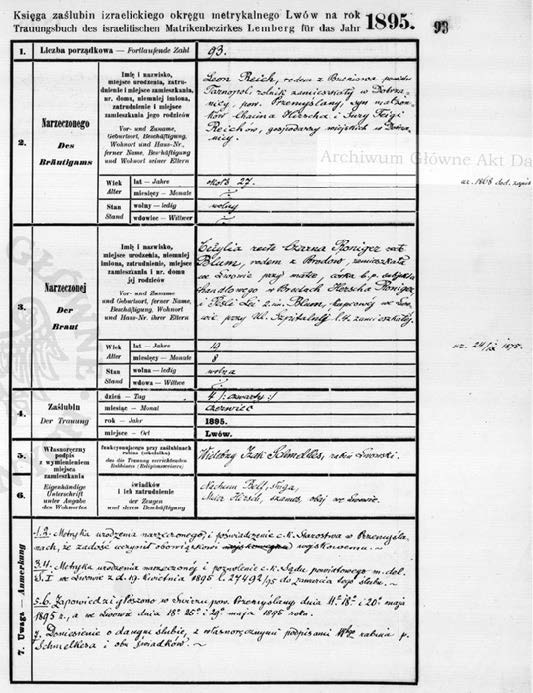 Księga zaślubin izraelickiego okręgu metrykalnego Lwów na rok 1895.
Trauungsbuch des israelitischen Matrikenbezirkes Lemberg für das Jahr
93
1. Liczba porządkowa — Fortlaufende Zahl 93.
2. Narzeczonego
Des Bräutigams
Imię i nazwisko,
miejsce urodzenia, zatru-
dnienie i miejsce zamieszkania,
nr. domu, niemniej imiona,
zatrudnienie i miejsce
zamieszkania jego rodziców
Vor- und Zuname,
Geburtsort, Beschäftigung,
Wohnort und Haus-Nr.,
ferner Name, Beschäftigung
und Wohnort seiner Eltern
Leon Reich, rodem z powiatu
Tarnopol, rolnik zamieszkały w Dobrza-
nicy, pow. Przemyślany, syn małżon-
ków Chaima Herscha i Sury Feigi
Reichów, gospodarzy wiejskich w Dobrza-
nicy.
Archiwum Główne Akt Da
Wiek
Alter
lat — Jahre około 27.
miesięcy — Monate
ur. 1868
Stan
Stand
wolny — ledig wolny
wdowiec — Wittwer
3. Narzeczonej
Der Braut
Imię i nazwisko,
miejsce urodzenia, niemniej
imiona, zatrudnienie, miejsce
zamieszkania i nr. domu
jej rodziców
Vor- und Zuname
und Geburtsort, ferner Name,
Beschäftigung, Wohnort
und Haus-Nr. ihrer Eltern
Cecylia recte Czarna Roniger vel
Blum, rodem z Brodów, zamieszkała
we Lwowie przy matce, córka ś.p.
handlowego w Brodach Herscha Ronigera
i Lei 2 im. Blum, kupcowej we Lwo-
wie przy Ul. Szpitalnej l. 4. zamieszkałej.
Wiek
Alter
lat — Jahre 19
miesięcy — Monate 8
1875.
Stan
Stand
wolna — ledig wolna
wdowa — Wittwe
4. Zaślubin
Der Trauung
dzień — Tag 4 /: czwarty :/
miesiąc — Monat czerwiec
rok — Jahr 1895.
miejsce — Ort Lwów.
5.
6.
Własnoręczny
podpis
z wymienieniem
miejsca
zamieszkania
Eigenhändige
Unterschrift
unter Angabe
des Wohnortes
funkcyonującego przy zaślubinach
rabina (nauczyciela)
des die Trauung verrichtenden
Rabbiners (Religionsweisers)
Izak Schmelkes, rabin lwowski.
świadków
i ich zatrudnienie
der Zeugen
und deren Beschäftigung
Nachum
Meier Hersch, szames, obaj w Lwowie.
7. Uwaga — Anmerkung
1.2. Metryka urodzenia narzeczonego, i poświadczenie c.k. Starostwa w Przemyśla-
nach, że zadość uczynił obowiązkowi wojskowemu. ~
3.4. Metryka urodzenia narzeczonej i pozwolenie c.k. Sądu powiatowego m. del.
S. I we Lwowie z d. 19. Kwietnia 1895 l. 27492/95 do zawarcia tego ślubu. ~
5.6. Zapowiedzi głoszono w Świrzu pow. Przemyślany dnia 11o 18o i 20o maja
1895 r., a we Lwowie dnia 18o 25o i 29o maja 1895 roku.
7. Doniesienie o danym ślubie, z własnoręcznymi podpisami rabina p.
Schmelkesa i obu świadków. ~